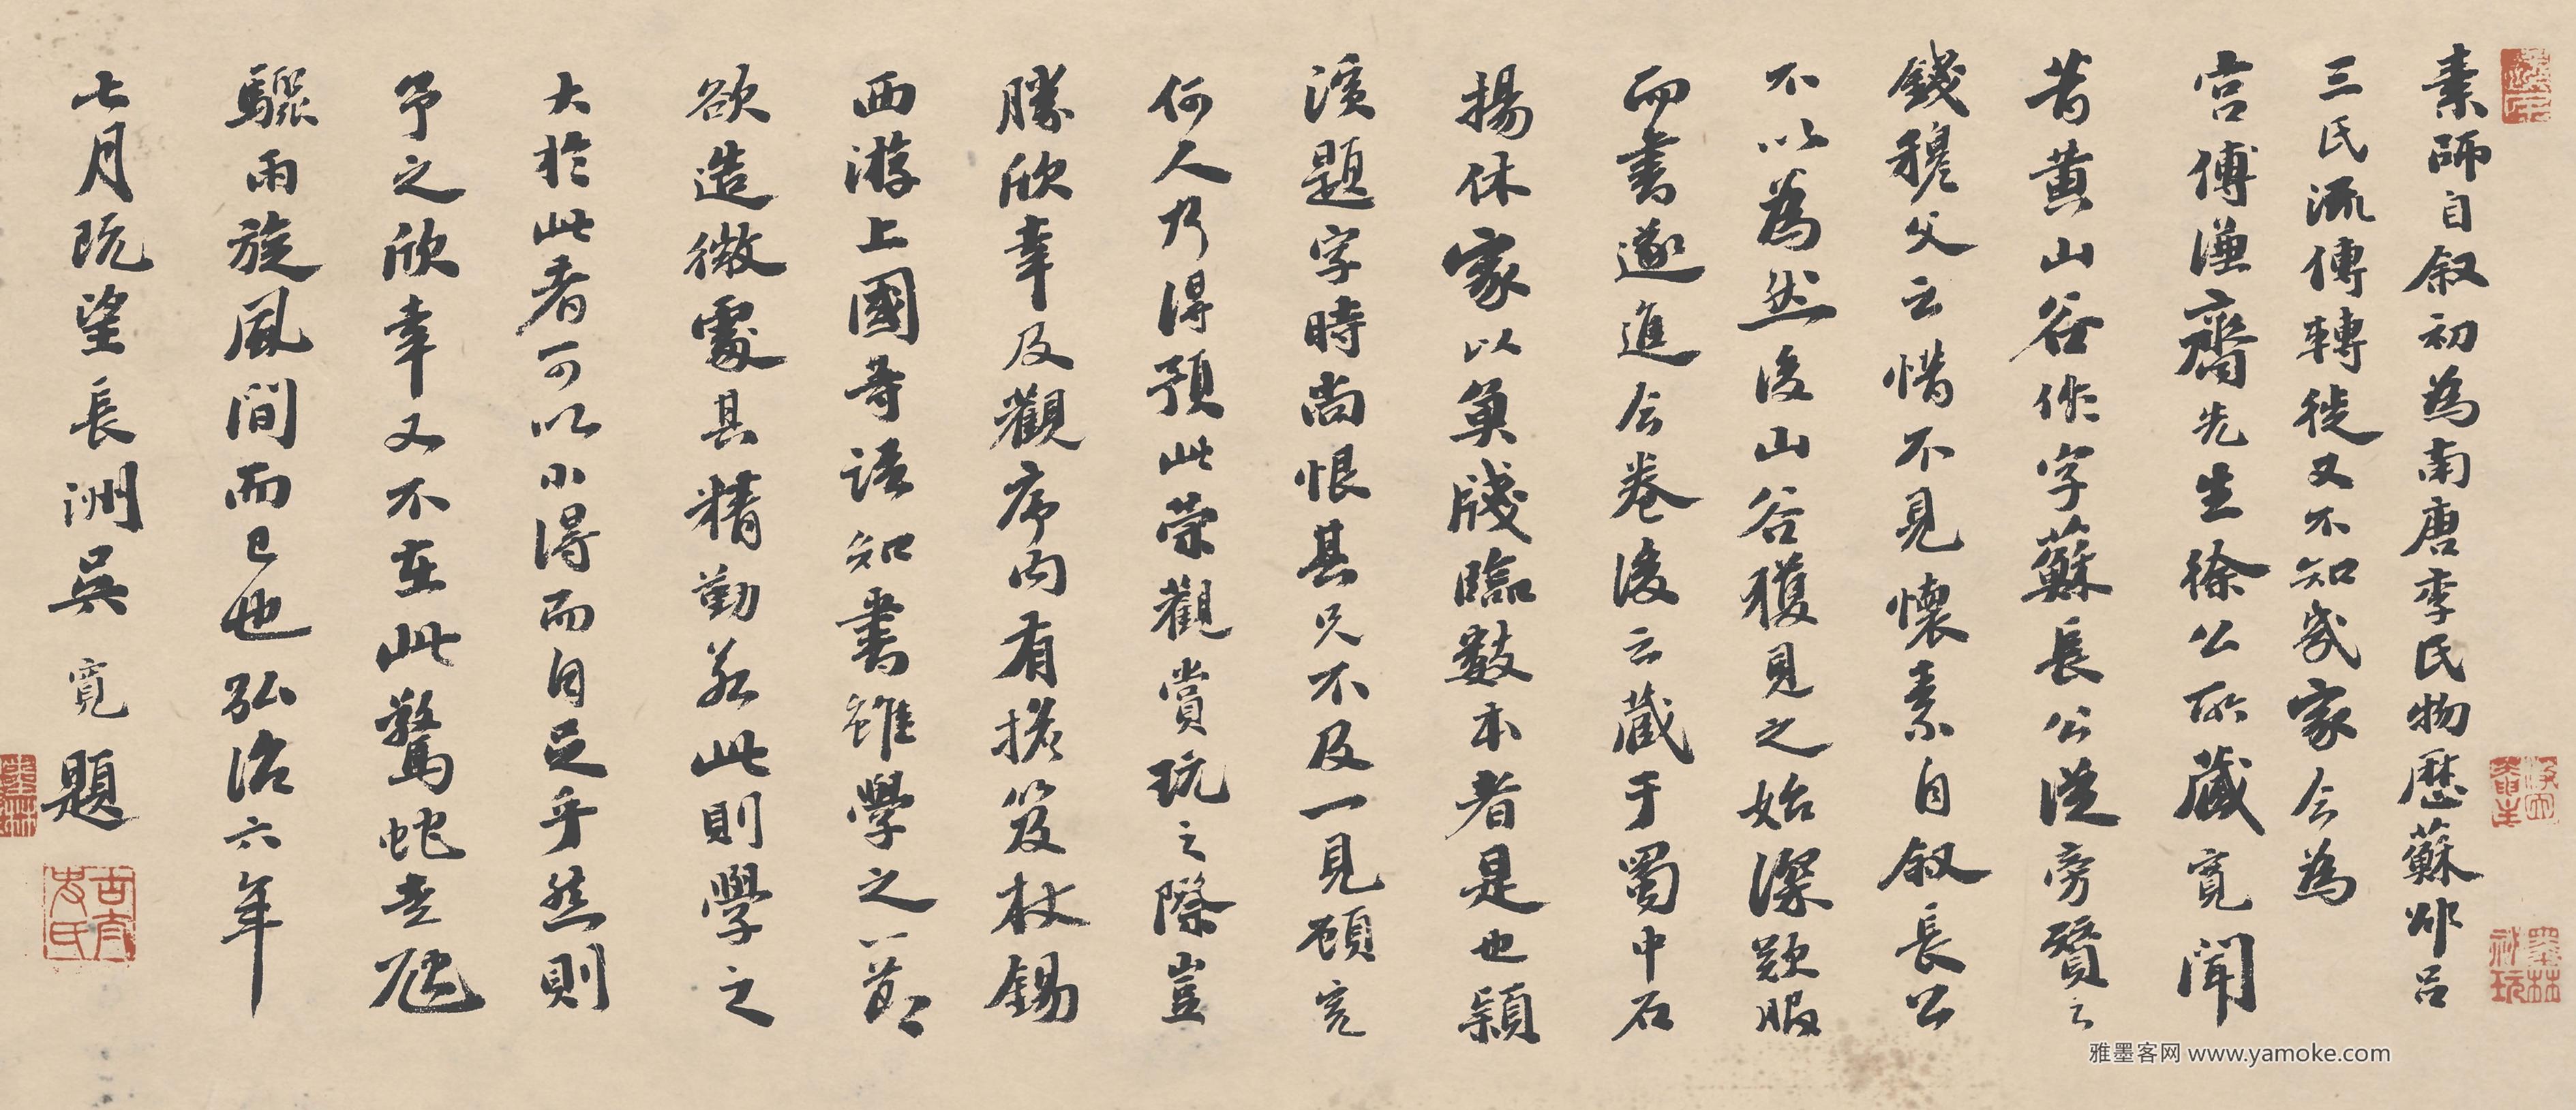 素師自叙初為南唐李氏物歷蘇邵呂
三氏流傳轉徙又不知幾家今為
宮傅謙齋先生徐公所藏寬聞
昔黃山谷作字蘇長公從旁贊之
錢穆父云惜不見懷素自叙長公
不以為然後山谷獲見之始深歎服
而書遂進今卷後云藏于蜀中石
揚休家以魚牋臨數本者是也潁
濱題字時尚恨其兄不及一見顧寬
何人乃得預此榮觀賞玩之際豈
勝欣幸及觀序內有擔笈杖錫
西遊上國等語知書雖學之一節
欲造微處其精勤若此則學之
大於此者可以小得而自足乎然則
予之欣幸又不在此驚蛇走虺
驟雨旋風間而已也弘治六年
七月既望長洲吳寬題
雅墨客网 www.yamoke.com